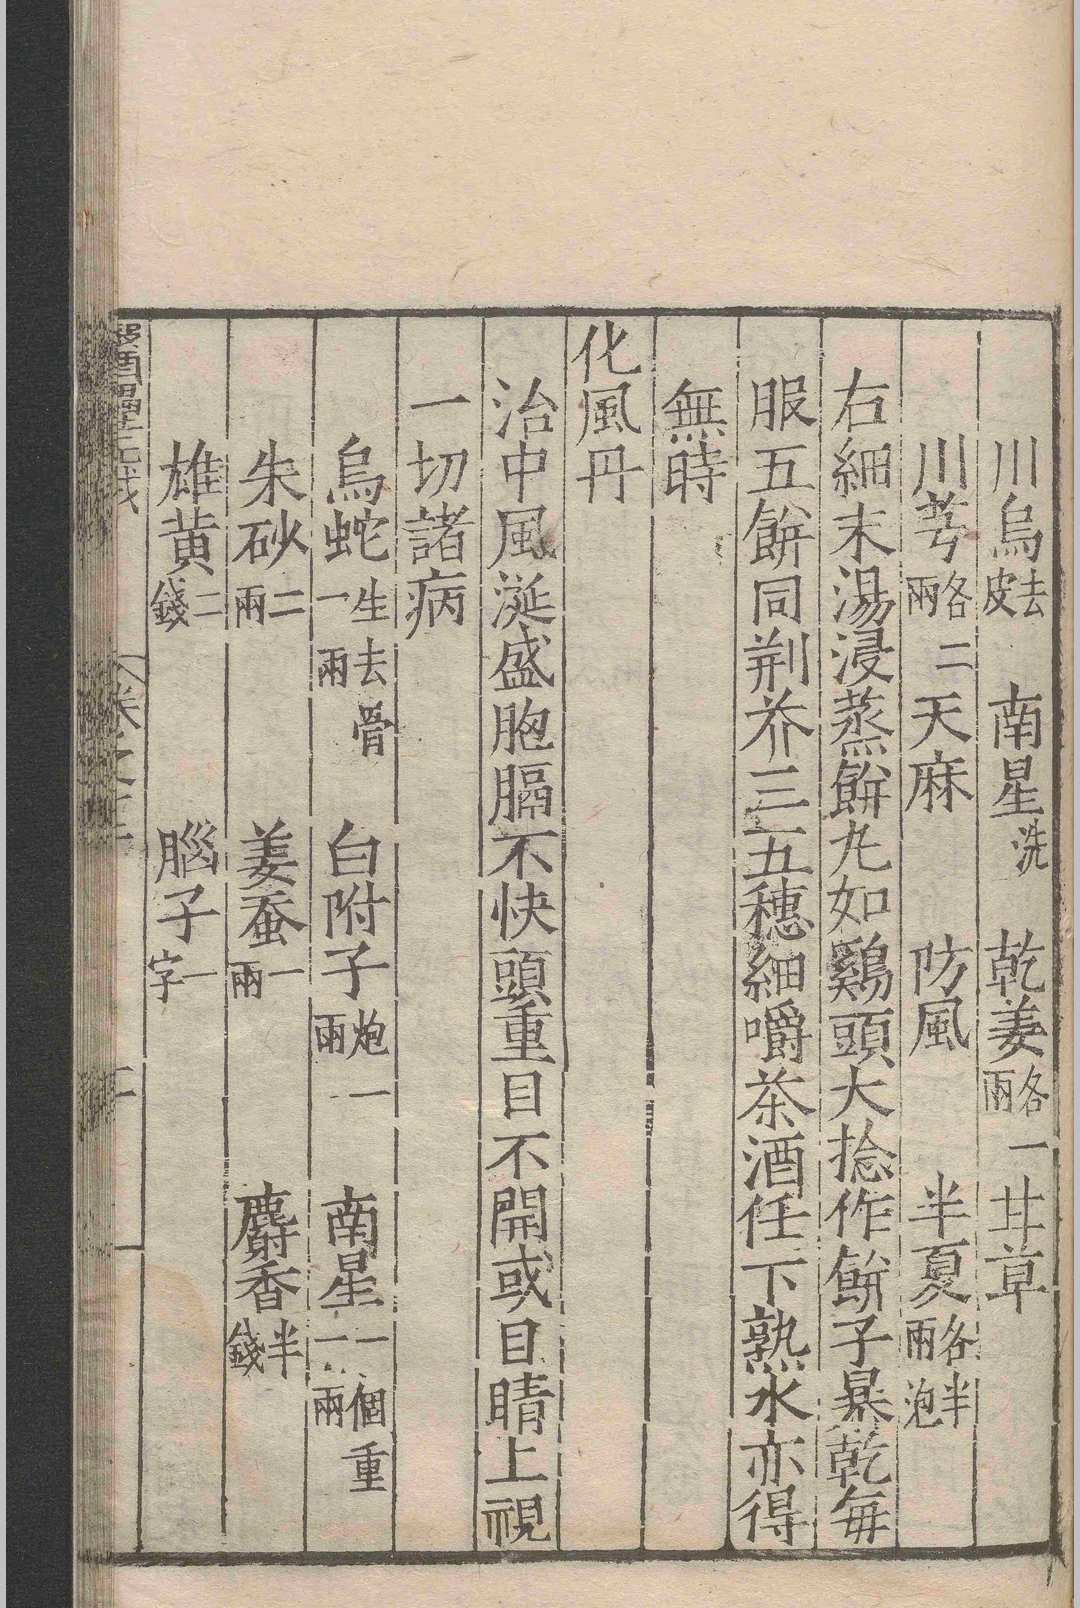 川烏去皮 南星洗 乾姜各一兩 甘草
川芎各二兩 天麻 防風 半夏各半兩泡
右細末湯浸蒸餅丸如鷄頭大捻作餅子暴乾每
服五餅同荆芥三五穗細嚼茶酒任下熟水亦得
無時
化風丹
治中風涎盛胸膈不快頭重目不開或目睛上視
一切諸病
烏蛇生去骨一兩 白附子炮一兩 南星一個重一兩
朱砂二兩 姜蚕一兩 麝香半錢
雄黄二錢 腦子一字